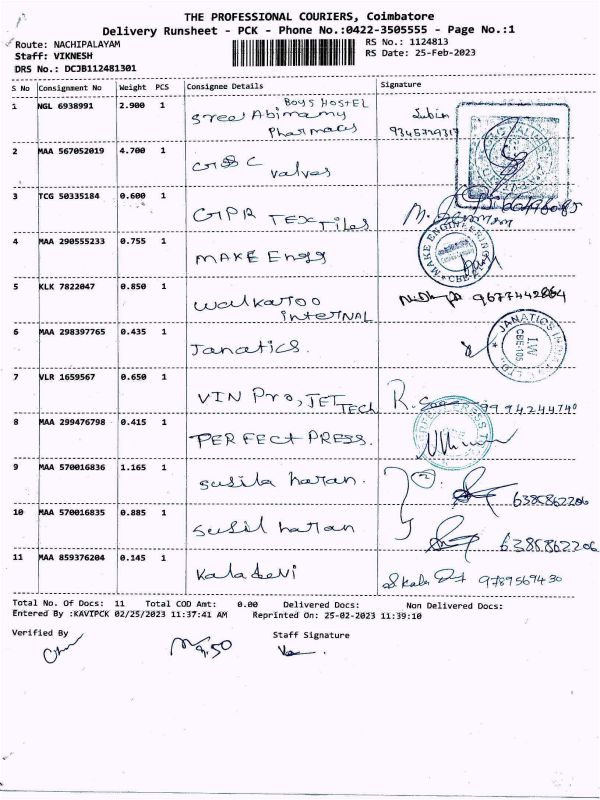 THE PROFESSIONAL COURIERS, Coimbatore
Delivery Runsheet - PCK - Phone No.:0422-3505555 - Page No.:1
Route: NACHIPALAYAM RS No.: 1124813
Staff: VIKNESH RS Date: 25-Feb-2023
DRS No.: DCJB112481301
S No Consignment No Weight PCS Consignee Details Signature
1 NGL 6938991 2.900 1 Sree Abiramy BOYS HOSTEL
Pharmacy
2 MAA 567052019 4.700 1 valves
3 TCG 50335184 0.600 1 GPR TEXtiles
4 MAA 290555233 0.755 1 MAKE Engg
MAKE ENGINEERING
CBE
5 KLK 7822047 0.850 1 Walkaroo 9677442864
interNAL
6 MAA 298397765 0.435 1 Janatics.
JANATICS
CBE-105
7 VLR 1659567 0.650 1 VIN Pro, JET TECH
8 MAA 299476798 0.415 1 PERFECT PRESS.
9 MAA 570016836 1.165 1 susila haran. 6385862206
10 MAA 570016835 0.885 1 susil haran 6385862206
11 MAA 859376204 0.145 1 Kaladevi
Total No. Of Docs: 11 Total COD Amt: 0.00 Delivered Docs: Non Delivered Docs:
Entered By :KAVIPCK 02/25/2023 11:37:41 AM Reprinted On: 25-02-2023 11:39:10
Verified By Staff Signature
9.50